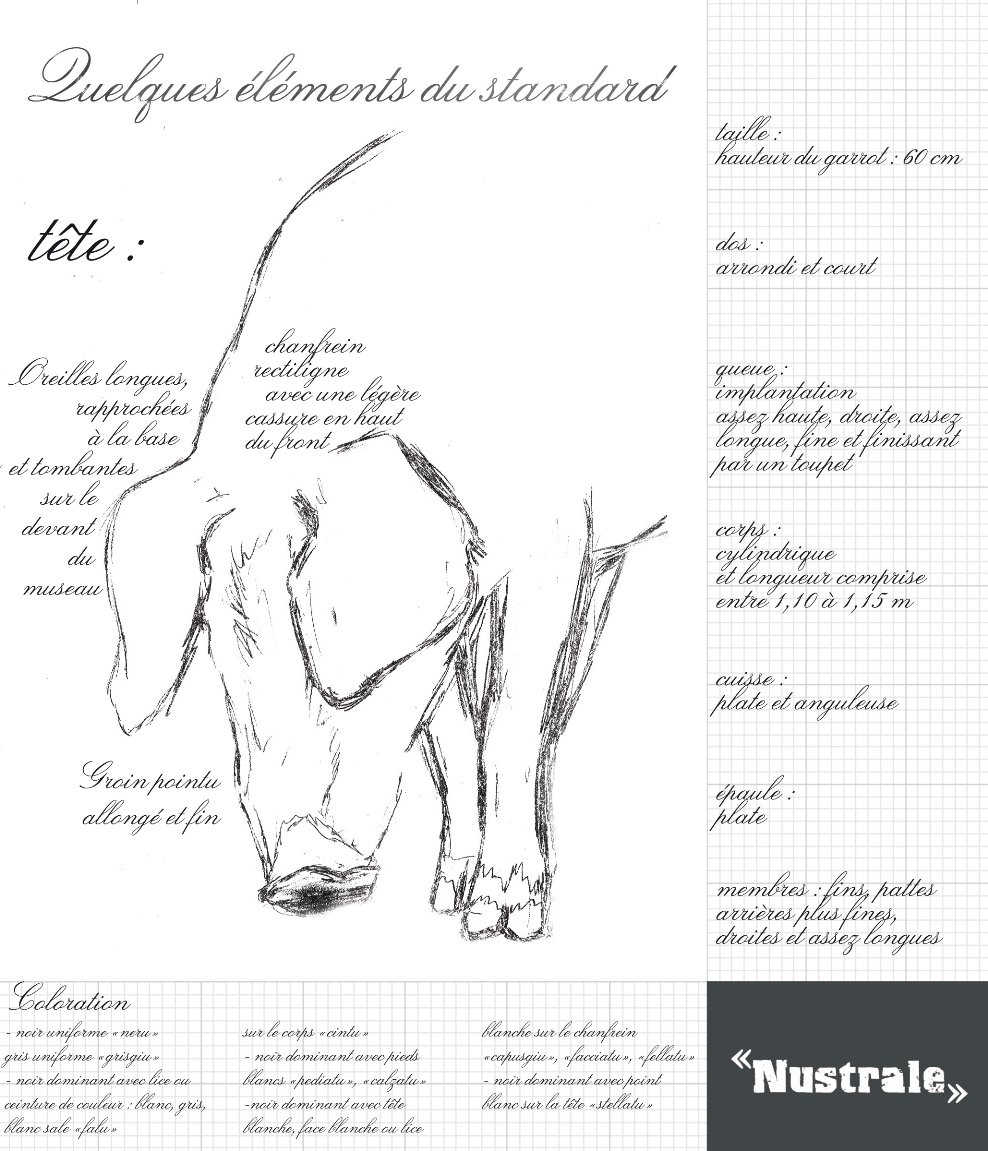 Quelques éléments du standard
tête :
Oreilles longues,
rapprochées
à la base
et tombantes
sur le
devant
du
museau
chanfrein
rectiligne
avec une légère
cassure en haut
du front
Groin pointu
allongé et fin
taille :
hauteur du garrot : 60 cm
dos :
arrondi et court
queue :
implantation
assez haute, droite, assez
longue, fine et finissant
par un toupet
corps :
cylindrique
et longueur comprise
entre 1,10 à 1,15 m
cuisse :
plate et anguleuse
épaule :
plate
membres : fins, pattes
arrières plus fines,
droites et assez longues
Coloration
- noir uniforme «neru»
gris uniforme «grisgiu»
- noir dominant avec lice ou
ceinture de couleur : blanc, gris,
blanc sale «falu»
sur le corps «cintu»
- noir dominant avec pieds
blancs «pediatu», «calzatu»
-noir dominant avec tête
blanche, face blanche ou lice
blanche sur le chanfrein
«capusgiu», «facciatu», «fellatu»
- noir dominant avec point
blanc sur la tête «stellatu»
«Nustrale»